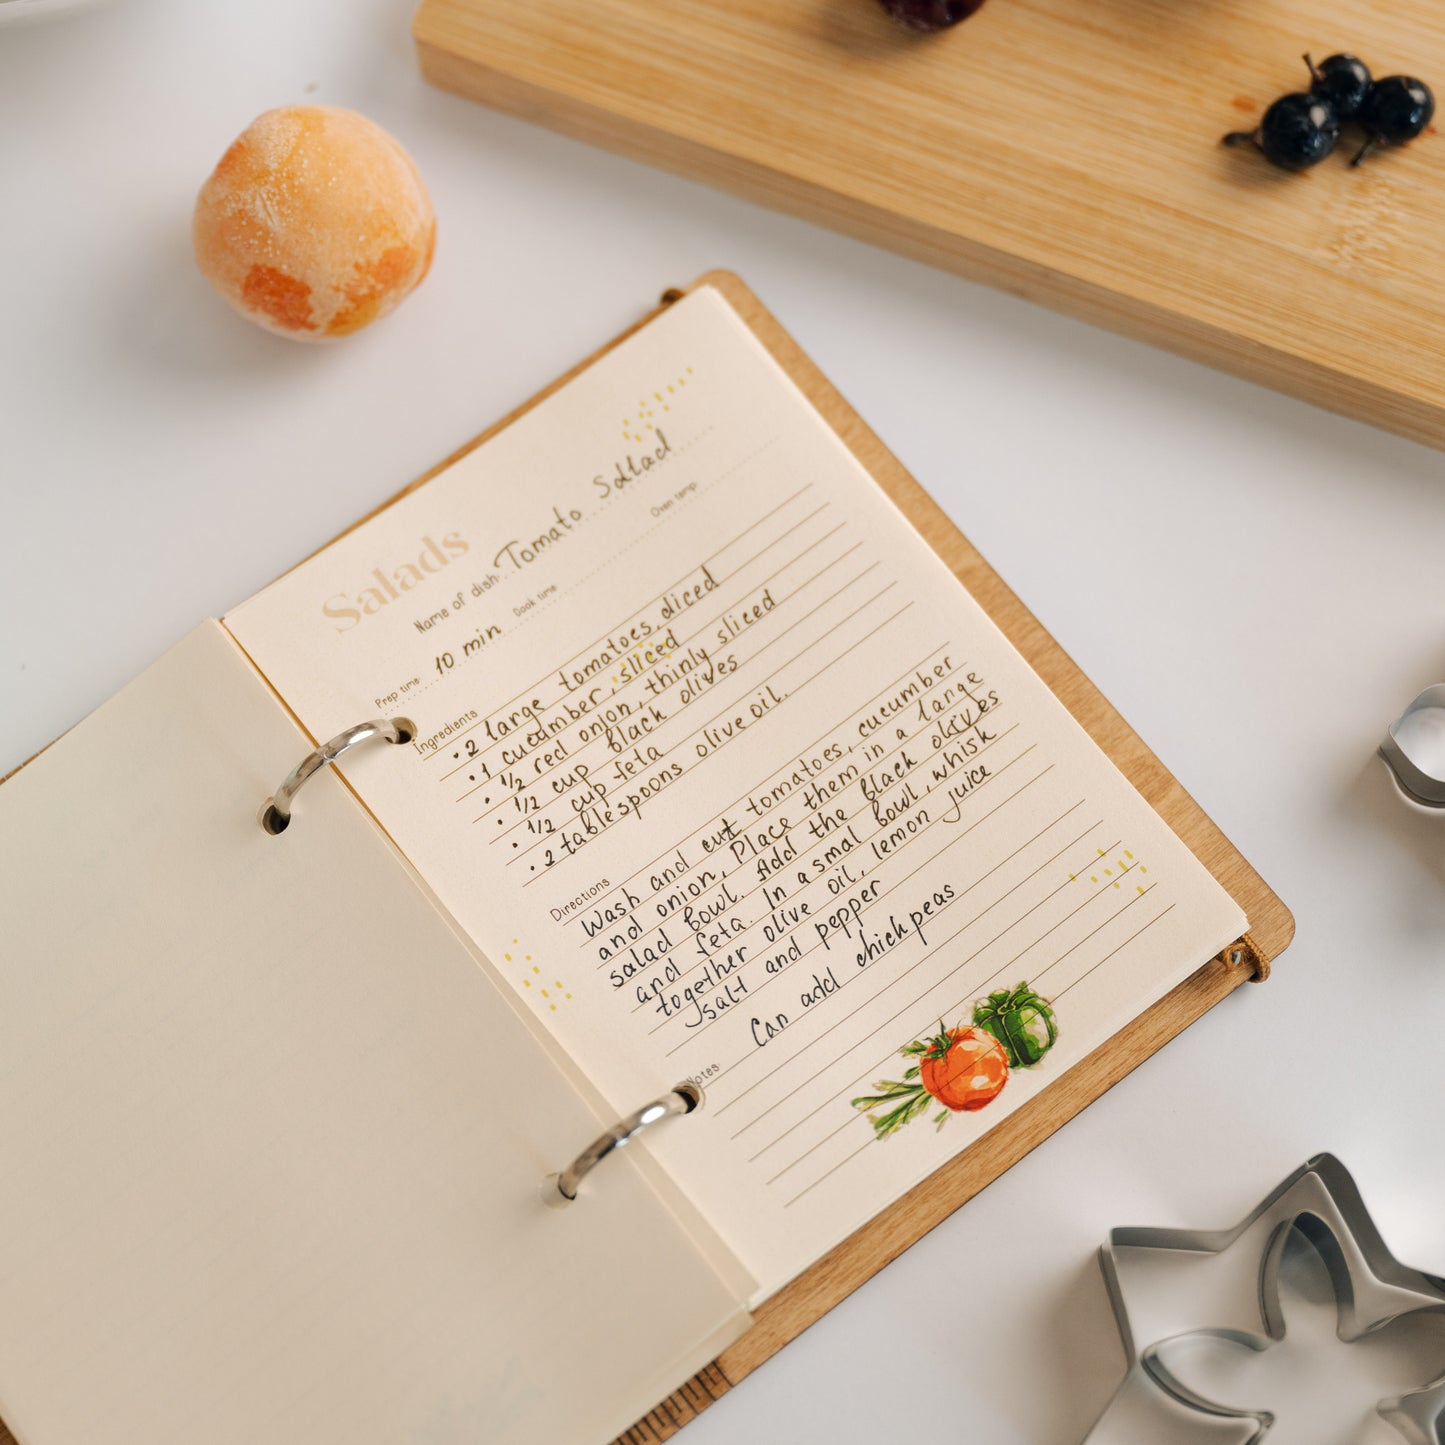 Salads
Name of dish Tomato Salad
Prep time 10 min Cook time Oven temp
Ingredients
• 2 large tomatoes, diced
• 1 cucumber, sliced
• 1/2 red onion, thinly sliced
• 1/2 cup black olives
• 1/2 cup feta
• 2 tablespoons olive oil.
Directions
Wash and cut tomatoes, cucumber
and onion, Place them in a large
salad bowl. Add the black olives
and feta. In a smal bowl, whisk
together olive oil, lemon juice
salt and pepper
Notes Can add chickpeas